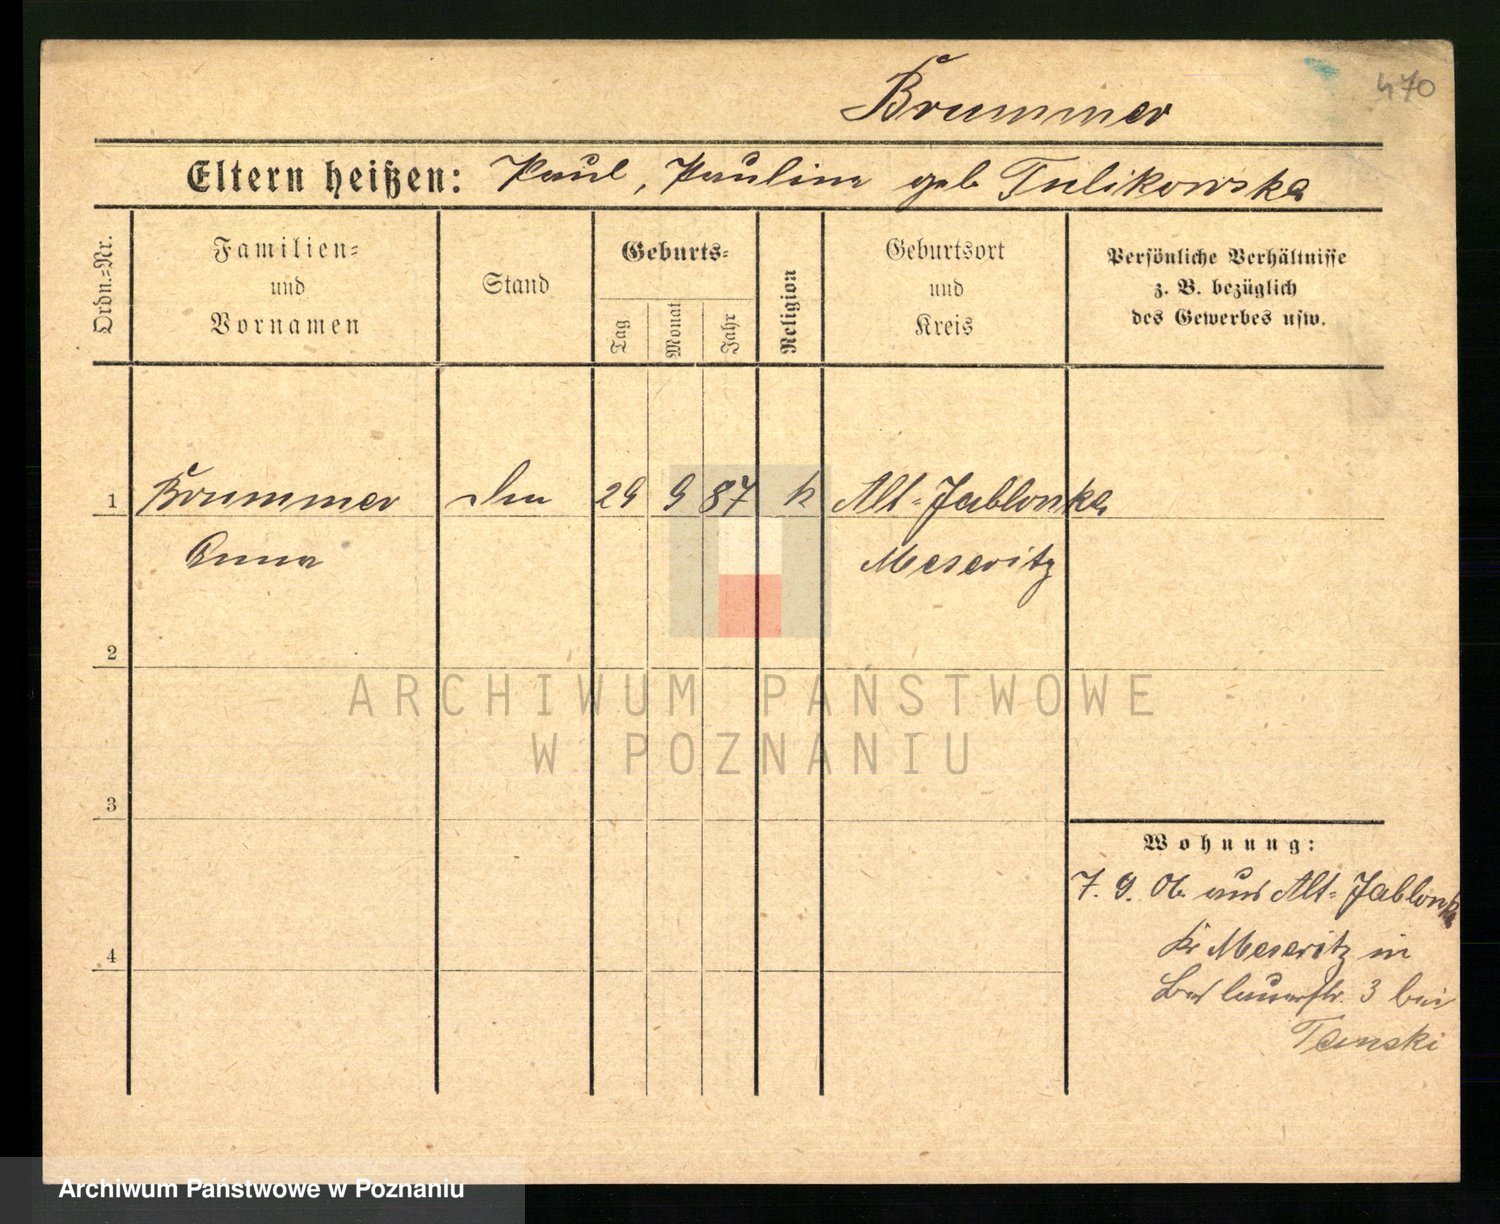 470
Brummer
Eltern heißen: Paul, Pauline geb Tulikowska
Ordn.=Nr.
Familien=
und
Vornamen
Stand
Geburts=
Tag
Monat
Jahr
Religion
Geburtsort
und
Kreis
Persönliche Verhältnisse
z. B. bezüglich
des Gewerbes usw.
1 Brummer 29 9 87 k Alt-Jablonka
Anna Meseritz
2
3
4
Wohnung:
7. 9. 06 aus Alt-Jablonka
Kr Meseritz in
3 bei
Tomski
ARCHIWUM PAŃSTWOWE
W POZNANIU
Archiwum Państwowe w Poznaniu